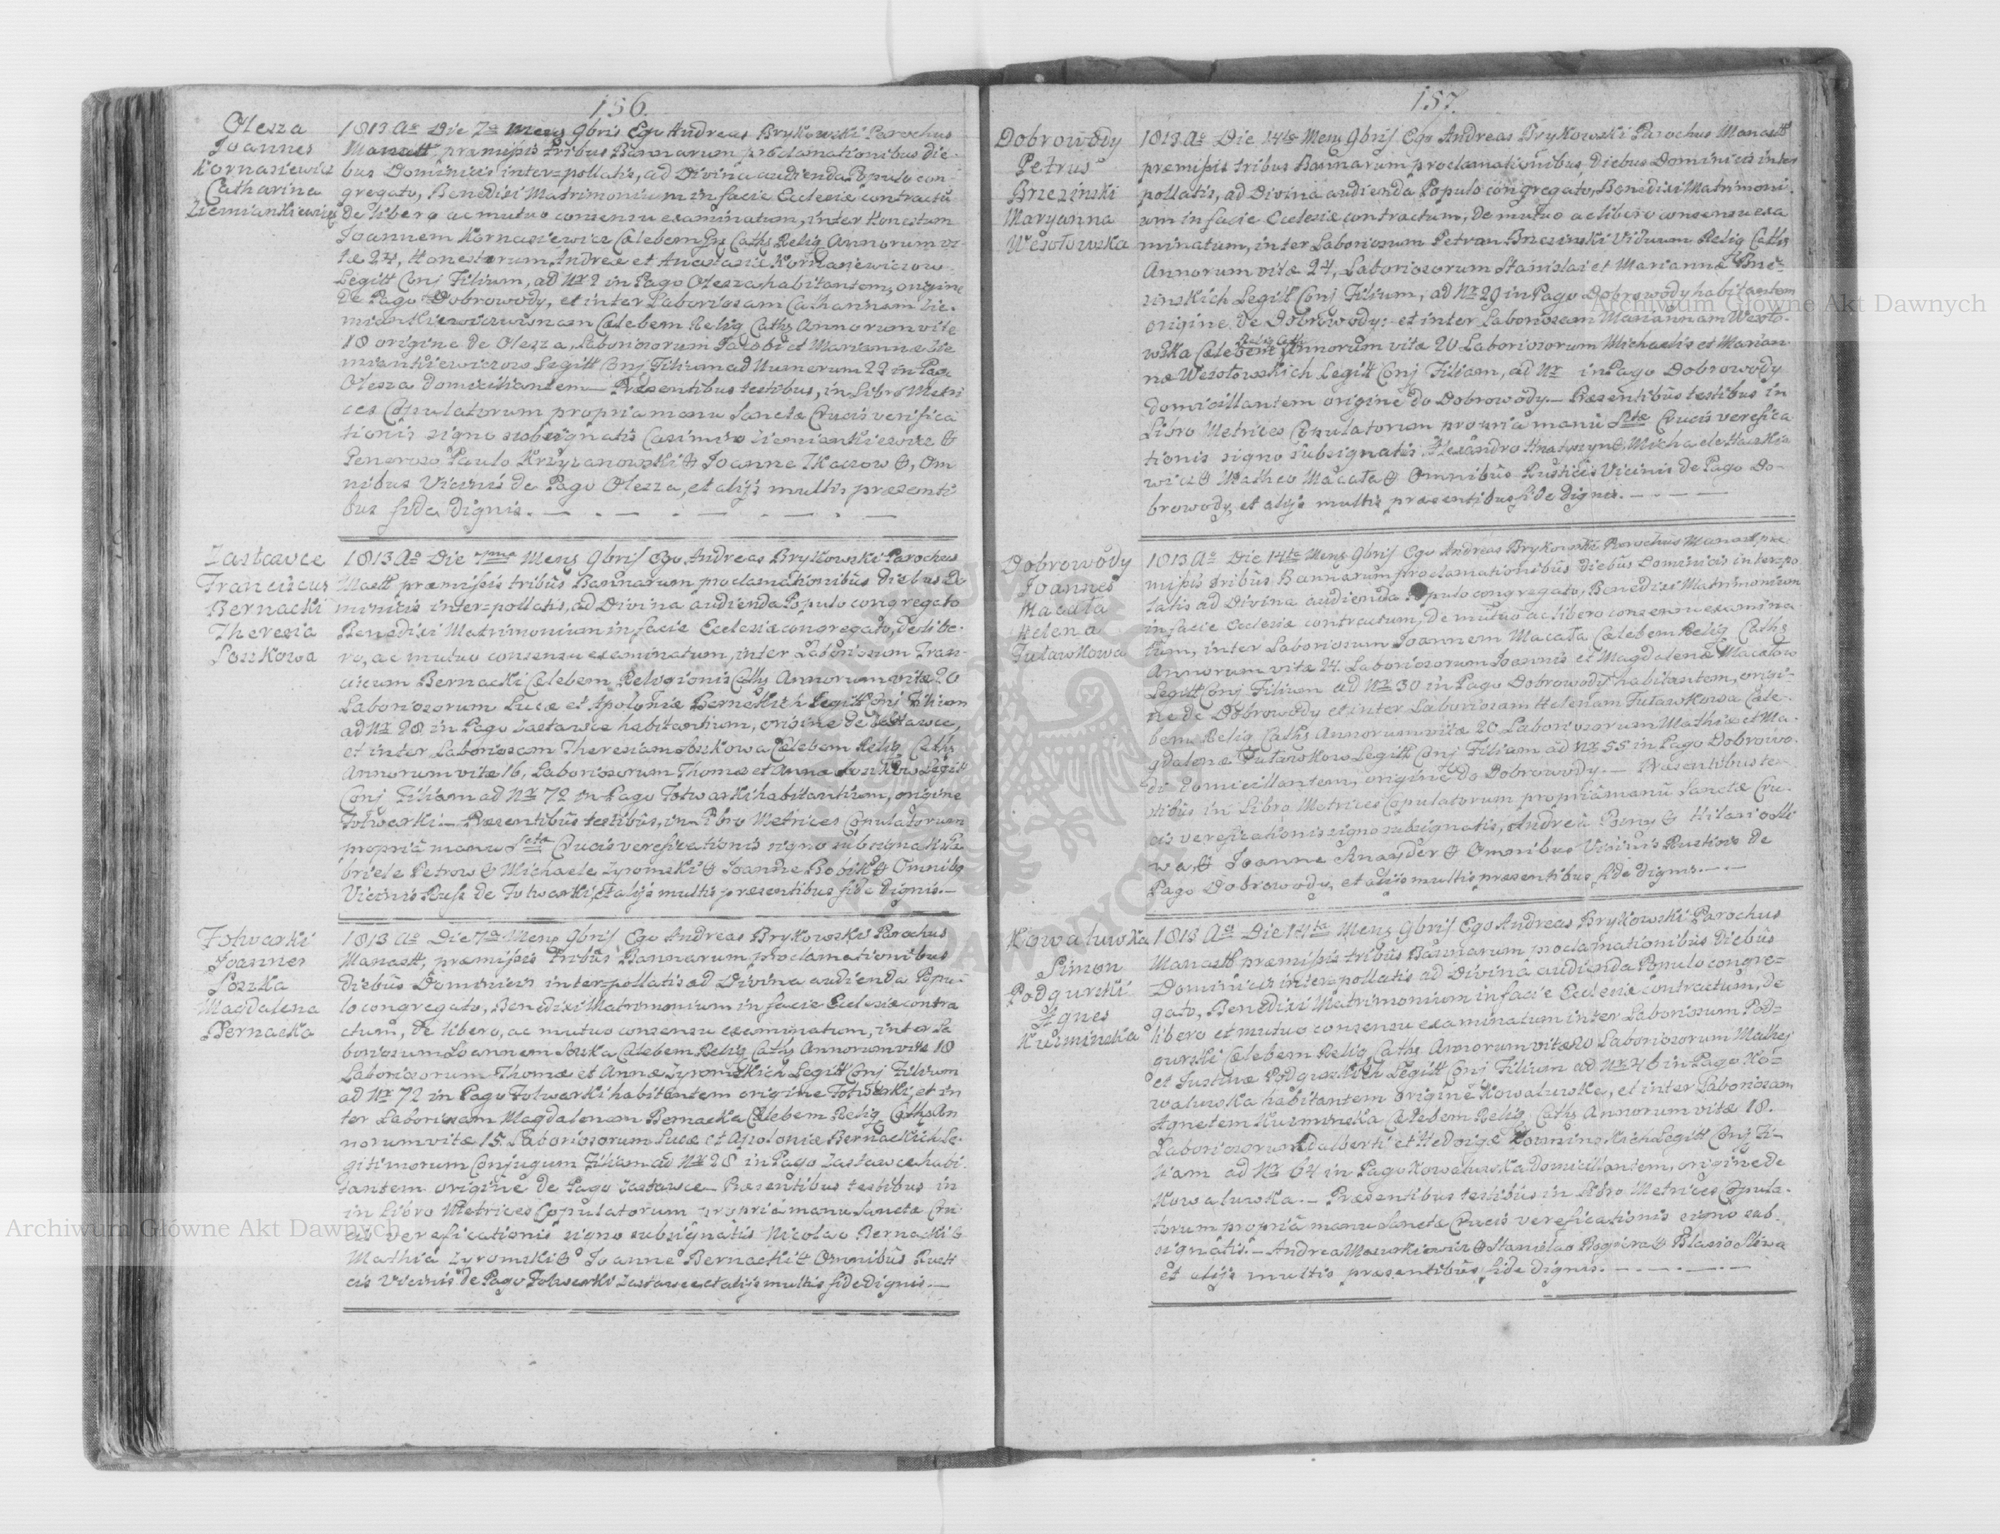 156.
Olesza
Joannes
Kornasiewicz
Catharina
Ziemiankiewicz
1813 Ao Die 7a Mens 9bris Ego Andreas Brykowski Parochus
Manast præmissis tribus Bannarum proclamationibus die-
bus Dominicis inter=pollatis, ad Divina audienda Populo con
gregato, Benedixi Matrimonium in facie Ecclesiæ contractũ
de libero ac mutuo consensu examinatum, inter Honestum
Joannem Kornasiewicz Cælebem Catħ Relig Annorum vi
tæ 24, Honestorum Andreæ et Anastasiæ Kornasiewiczow
Legitt Conj Filium, ad Nr 2 in Pago Olesza habitantem, origine
de Pago Dobrowody, et inter Laboriosam Catharinam Zie-
miankiewiczownam Cælebem Relig Cath Annorum vitæ
18 origine de Olesza, Laboriosorum Jacobi et Mariannæ Zie
miankiewiczow Legitt Conj Filiam ad Numerum 22 in Pago
Olesza domicillantem — Præsentibus testibus, in Libro Metri
ces Copulatorum propria manu Sanctæ Crucis verifica
tionis signo subsignatis Casimiro Ziemiankiewicz &
Generoso Paulo Krzyżanowski & Joanne Tkaczow &, Om
nibus Vicinis de Pago Olesza, et alijs multis præsenti
bus fide dignis. — . — . — . — . —
Zastawce
Franciscus
Bernacki
Theresia
Soukowa
1813 Ao Die 7ma Mens 9bris Ego Andreas Brykowski Parochus
Mastt præmissis tribũs Bannarum proclamationibũs diebus Do
minicis inter=pollatis, ad Divina audienda Populo congregato
Benedixi Matrimonium in facie Ecclesiæ congregato, de libe-
ro, ac mutuo consensu examinatum, inter Laboriosum Fran-
ciscum Bernacki Cælebem Religionis Cath Annorum vitæ 20
Laboriosorum Lucæ et Apoloniæ Bernackich Legitt Conj Filium
ad Nr 28 in Pago Zastawce habitantium, origine de Zastawce,
et inter Laboriosam Theresiam Soskowa Cælebem Relig Cath
Annorum vitæ 16, Laboriosorum Thomæ et Anna Soskow Legitt
Conj Filiam ad Nr 72 in Pago Folwarki habitantium, origine
Folwarki — Præsentibũs testibũs, in Libro Metrices Copulatorum
propriâ manu Sctæ Crucis verefirationis signo subsignatis Ga
briele Petrow & Michaele Zyromski & Joanne Bobik & Omnibq
Vicinis Rust de Folwarki, et alijs multis præsentibus, fide dignis. —
Folwarki
Joannes
Soska
Magdalena
Bernacka
1813 Ao Die 7a Mens 9bris Ego Andreas Brykowski Parochus
Manastt, præmissis Tribũs Bannarum proclamationibus
diebũs Dominicis inter=pollatis ad Divina audienda Popu-
lo congregato, Benedixi Matrimonium in facie Ecclesiæ contra
ctum, de libero, ac mutuo consensu examinatum, inter La
boriosum Joannem Soska Cælebem Relig Cath Annorum vitæ 18
Laboriosorum Thomæ et Annæ Zyromskich Legitt Conj Filium
ad Nr 72 in Pago Folwarki habitantem origine Folwarki, et in
ter Laboriosam Magdalenam Bernacka Cælebem Relig Cath An
norum vitæ 15. Laboriosorum Lucæ et Apoloniæ Bernackich Le-
gitimorum Conjugum Filiam ad Nr 28 in Pago Zastawce habi
tantem origine de Pago Zastawce — Præsentibus testibus in
in Libro Metrices Copulatorum propria manu Sanctæ Cru
cis verefirationis signo subsignatis Nicolao Bernacki &
Mathia Zyromski & Joanne Bernacki & Omnibũs Rusti
cis Vicinis de Pago Folwarki Zastawce et alijs multis fide dignis —
157.
Dobrowody
Petrus
Brzezinski
Maryanna
Wesołowska
1813 Ao Die 14ta Mens 9bris Ego Andreas Brykowski Parochus Manastt
præmissis tribus Bannarum proclamationibus, diebus Dominicis inter
pollatis, ad Divina audienda Populo congregato, Benedixi Matrimoni-
um in facie Ecclesiæ contractum, de mutuo ac libero consensu exa
minatum, inter Laboriosum Petrum Brzezinski Viduum Relig Cath
Annorum vitæ 24, Laboriosorum Stanislai et Mariannæ Brze-
zinskich Legitt Conj Filium, ad Nr 29 in Pago Dobrowody habitantem
origine de Dobrowody: et inter Laboriosam Mariannam Wesoło-
wska Cælebem Relig Cath Annorum vitæ 20 Laboriosorum Michaelis et Marian
næ Wesołowskich Legitt Conj Filiam, ad Nr in Pago Dobrowody
domicillantem origine de Dobrowody. — Præsentibũs testibus in
Libro Metrices Copulatorum propria manũ Sctæ Crucis verefica
tionis signo subsignatis Alexandro Hnatyszyn & Michaele Haskie
wicz & Matheo Macała & Omnibũs Rusticis Vicinis de Pago Do-
browody, et alijs multis præsentibus fide dignis. — . — . —
Dobrowody
Joannes
Macała
Helena
Futawkowa
1813 Ao Die 14ta Mens 9bris Ego Andreas Brykowski Parochus Manast præ
missis tribũs Bannarum proclamationibũs diebũs Dominicis interpo
latis ad Divina audienda Populo congregato, Benedixi Matrimonium
in facie Ecclesiæ contractum, de mutuo ac libero consensu examina
tum, inter Laboriosum Joannem Macała Cælebem Relig Cath
Annorum vitæ 24. Laboriosorum Joannis et Magdalenæ Macałow
Legitt Conj Filium ad Nr 30 in Pago Dobrowody habitantem, origi-
ne de Dobrowody et inter Laboriosam Helenam Futawkowa Cæle-
bem Relig Cath Annorum vitæ 20 Laboriosorum Mathiæ et Ma-
gdalenæ Futawkow Legitt Conj Filiam ad Nr 55 in Pago Dobrowo
di domicillantem, origine de Dobrowody. — Præsentibus tes
tibũs in Libro Metrices Copulatorum propria manũ Sanctæ Cru-
cis verefirationis signo subsignatis, Andreâ Beny & Hilario Sli
wa, & Joanne Knayder & Omnibus Vicinis Rusticis de
Pago Dobrowody, et alijs multis præsentibus, fide dignis. — . —
Kowaluwka
Simon
Podgurski
Agnes
Kuzminska
1813 Ao Die 14ta Mens 9bris Ego Andreas Brykowski Parochus
Manastt præmissis tribũs Bannarum proclamationibũs diebũs
Dominicis interpollatis ad Divina audienda Populo congre=
gato, Benedixi Matrimonium in facie Ecclesiæ contractum, de
libero et mutuo consensu examinatum inter Laboriosum Pod=
gurski Cælebem Relig Cath Annorum vitæ 20 Laboriosorum Mathej
et Justinæ Podgurskich Legitt Conj Filium ad Nr 46 in Pago Ko=
waluwka habitantem origine Kowaluwke, et inter Laboriosam
Agnetem Kuzminska Cælebem Relig Cath Annorum vitæ 18.
Laboriosorum Adalberti et Hedvigæ Kuzminskich Legitt Conj Fi-
liam ad Nr 64 in Pago Kowaluwka domicillantem, origine de
Kowaluwka. — Præsentibus testibũs in Libro Metrices Copula-
torum propriâ manu Sanctæ Crucis verefirationis signo sub-
signatis. — Andrea Mazurkiewicz & Stanislao Rogoza & Blasio Sliwa
et alijs multis præsentibũs fide dignis. — . — . — . —
Archiwum Główne Akt Dawnych
Archiwum Główne Akt Dawnych